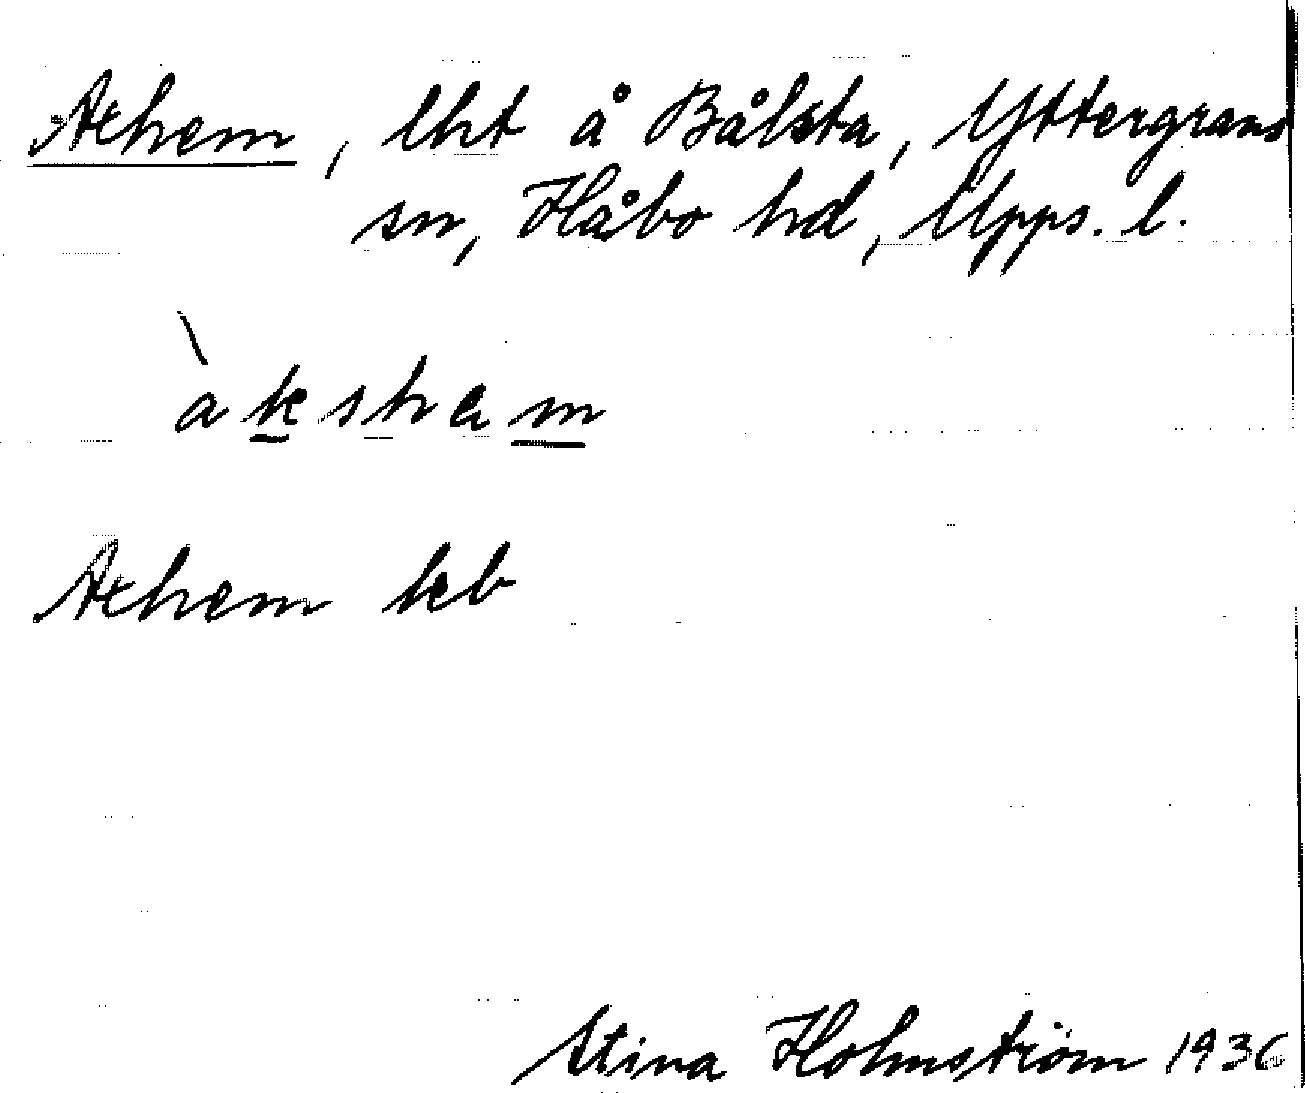 Axhem, lht å Bålsta, Yttergrans
sn, Håbo hd, Upps. l.
àkshem
Axhem kb
Stina Holmström 1936